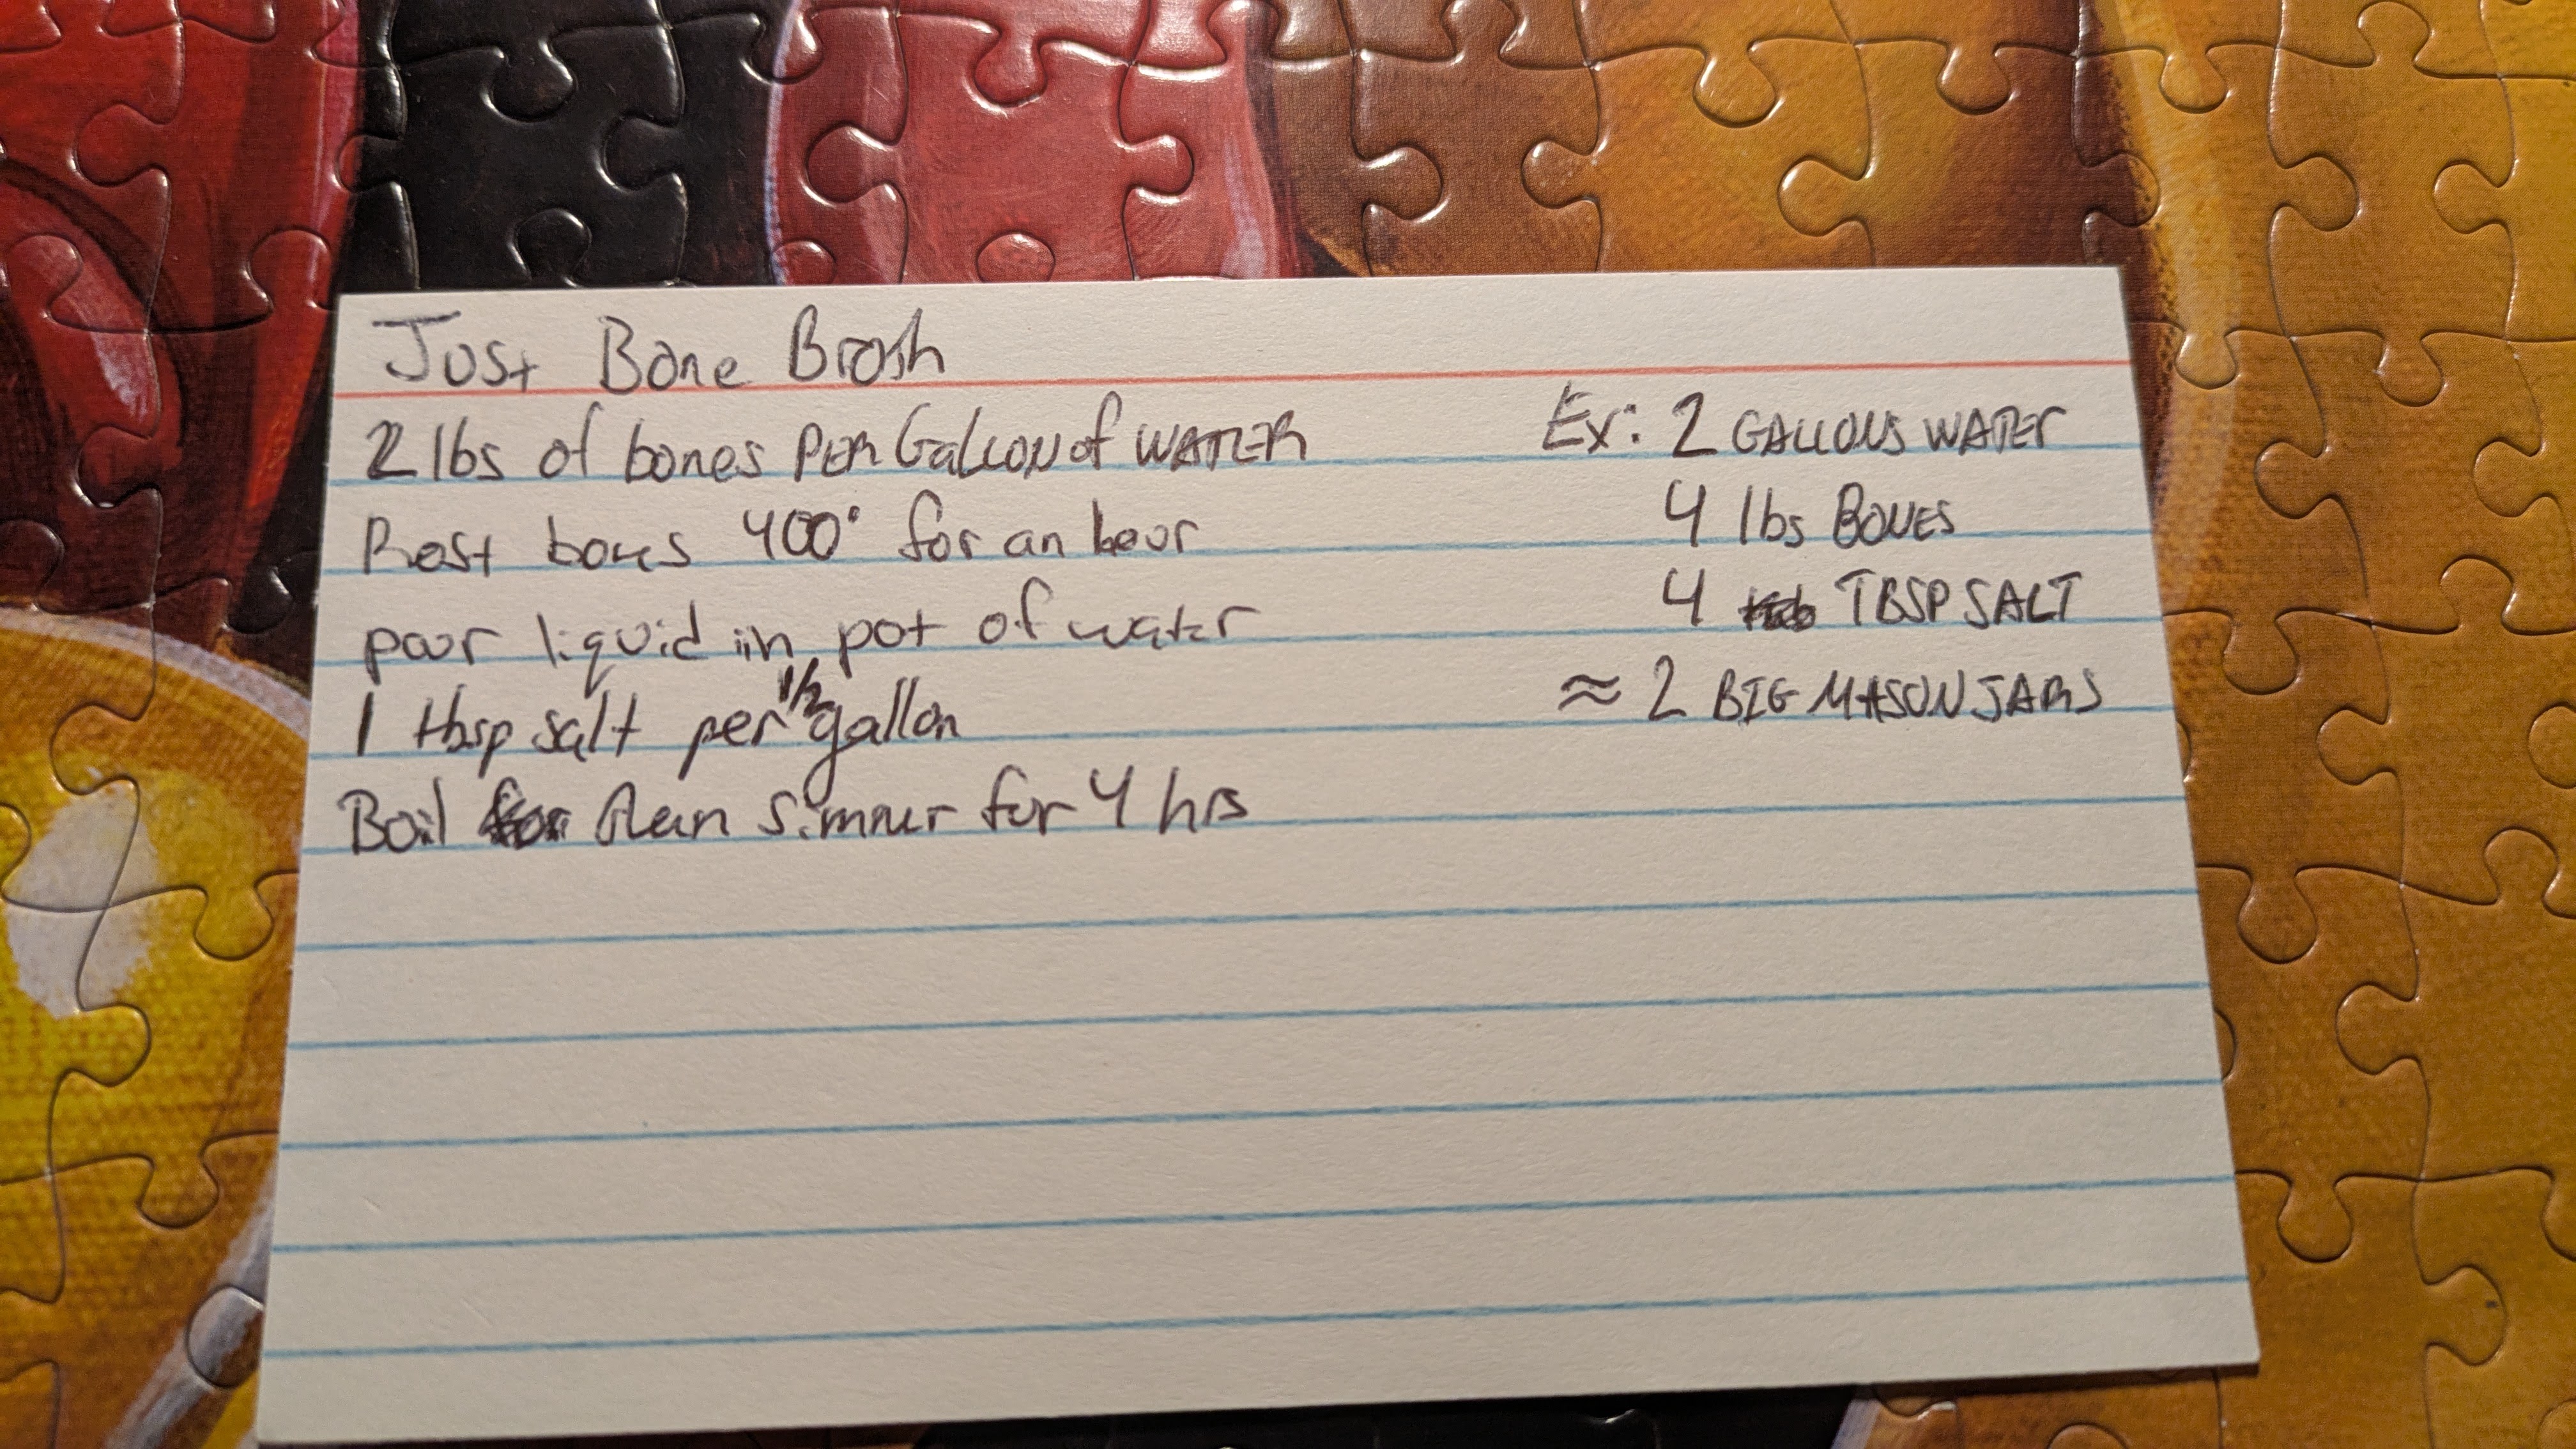 Just Bone Broth
2 lbs of bones PER Gallon of WATER
Rost bones 400° for an hour
pour liquid in pot of water
1 tbsp salt per 1/2 gallon
Boil then simmer for 4 hrs
Ex: 2 GALLONS WATER
4 lbs BONES
4 TBSP SALT
≈ 2 BIG MASON JARS